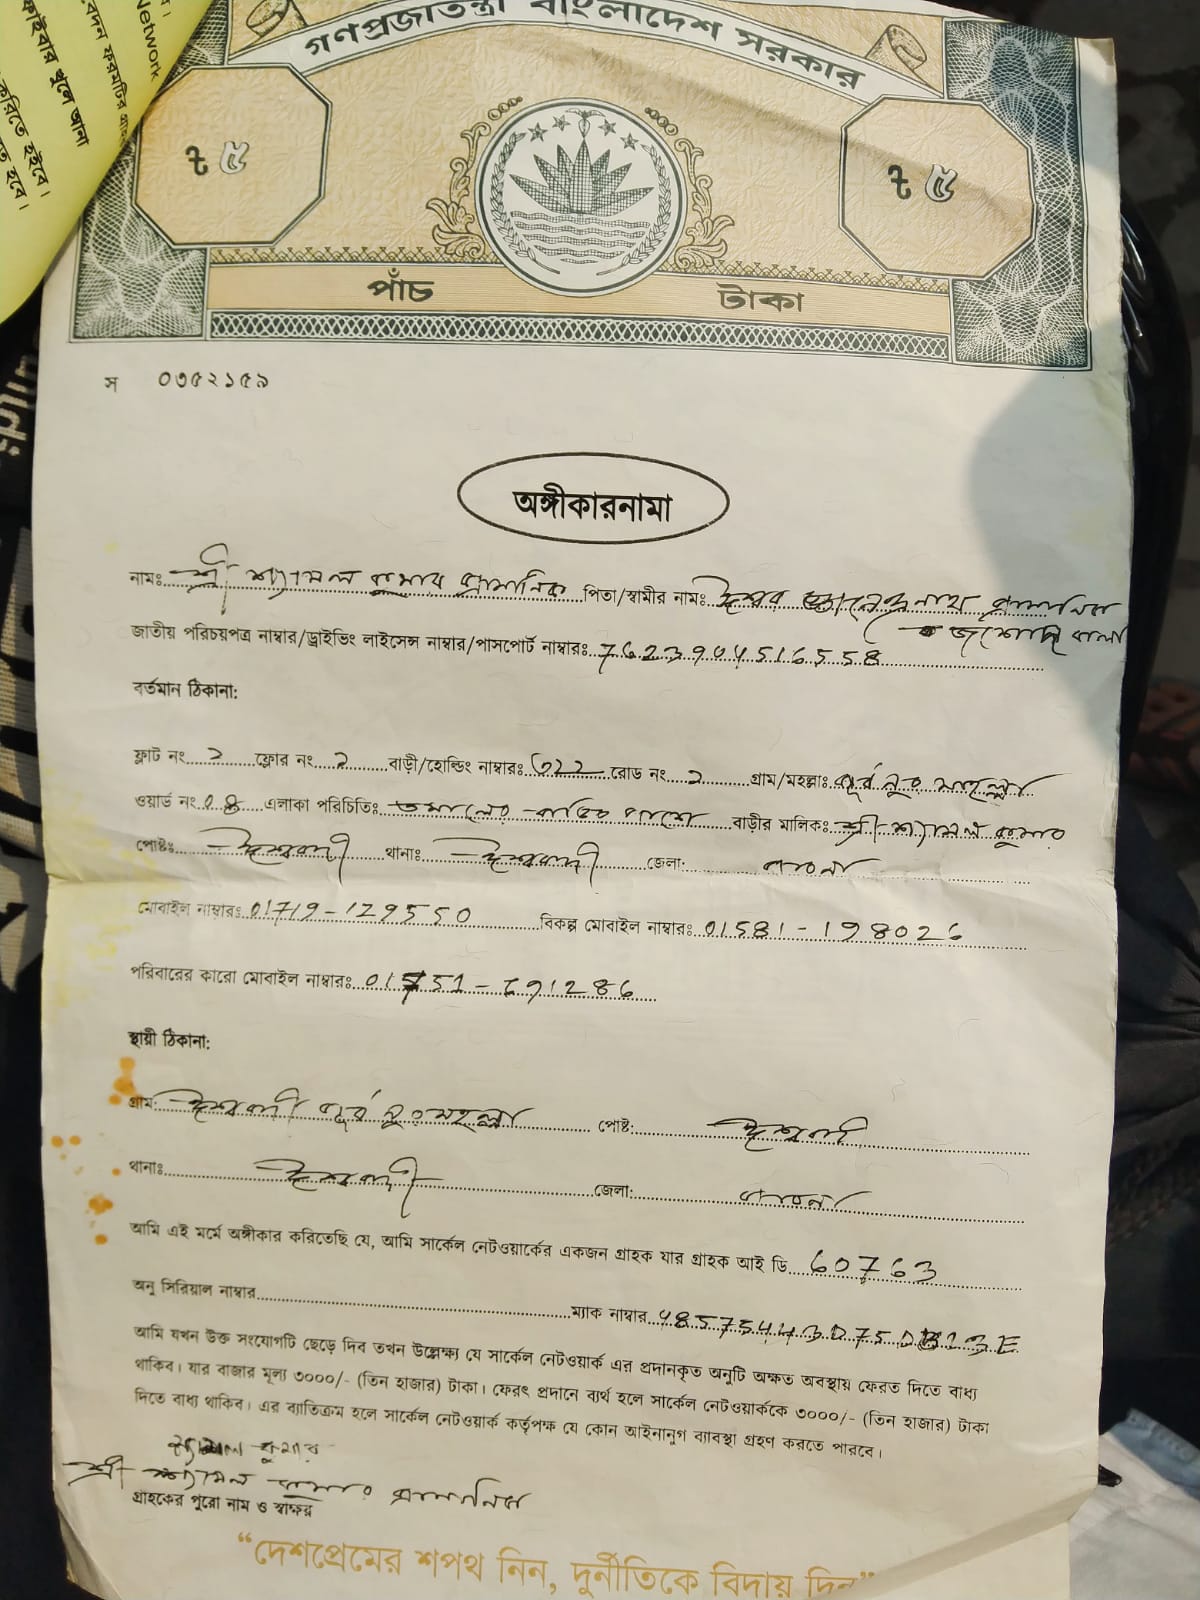 Network
বেদন ফরমটির
ফাইবার খুলে আনা
করিতে হইবে।
হবে।
গণপ্রজাতন্ত্রী বাংলাদেশ সরকার
৳ ৫
৳ ৫
পাঁচ টাকা
স ০৩৫২১৫৯
অঙ্গীকারনামা
নামঃ শ্রী শ্যামল কুমার প্রামানিক পিতা/স্বামীর নামঃ ঈশ্বর নাথ প্রামানিক
জাতীয় পরিচয়পত্র নাম্বার/ড্রাইভিং লাইসেন্স নাম্বার/পাসপোর্ট নাম্বারঃ
বর্তমান ঠিকানা:
ফ্লাট নং ২ ফ্লোর নং ২ বাড়ী/হোল্ডিং নাম্বারঃ ৩২২ রোড নং ২ গ্রাম/মহল্লাঃ
ওয়ার্ড নং এলাকা পরিচিতিঃ বাড়ীর মালিকঃ শ্রী শ্যামল কুমার
পোষ্টঃ ঈশ্বরদী থানাঃ ঈশ্বরদী জেলা: পাবনা
মোবাইল নাম্বারঃ 01719-129550 বিকল্প মোবাইল নাম্বারঃ 01581-198026
পরিবারের কারো মোবাইল নাম্বারঃ
স্থায়ী ঠিকানা:
গ্রাম: ঈশ্বরদী পোষ্ট: ঈশ্বরদী
থানাঃ ঈশ্বরদী জেলা: পাবনা
আমি এই মর্মে অঙ্গীকার করিতেছি যে, আমি সার্কেল নেটওয়ার্কের একজন গ্রাহক যার গ্রাহক আই ডি 60763
অনু সিরিয়াল নাম্বার ম্যাক নাম্বার
আমি যখন উক্ত সংযোগটি ছেড়ে দিব তখন উল্লেক্ষ্য যে সার্কেল নেটওয়ার্ক এর প্রদানকৃত অনুটি অক্ষত অবস্থায় ফেরত দিতে বাধ্য
থাকিব। যার বাজার মূল্য ৩০০০/- (তিন হাজার) টাকা। ফেরৎ প্রদানে ব্যর্থ হলে সার্কেল নেটওয়ার্ককে ৩০০০/- (তিন হাজার) টাকা
দিতে বাধ্য থাকিব। এর ব্যাতিক্রম হলে সার্কেল নেটওয়ার্ক কর্তৃপক্ষ যে কোন আইনানুগ ব্যাবস্থা গ্রহণ করতে পারবে।
শ্যামল কুমার
শ্রী শ্যামল কুমার প্রামানিক
গ্রাহকের পুরো নাম ও স্বাক্ষর
“দেশপ্রেমের শপথ নিন, দুর্নীতিকে বিদায় দিন”